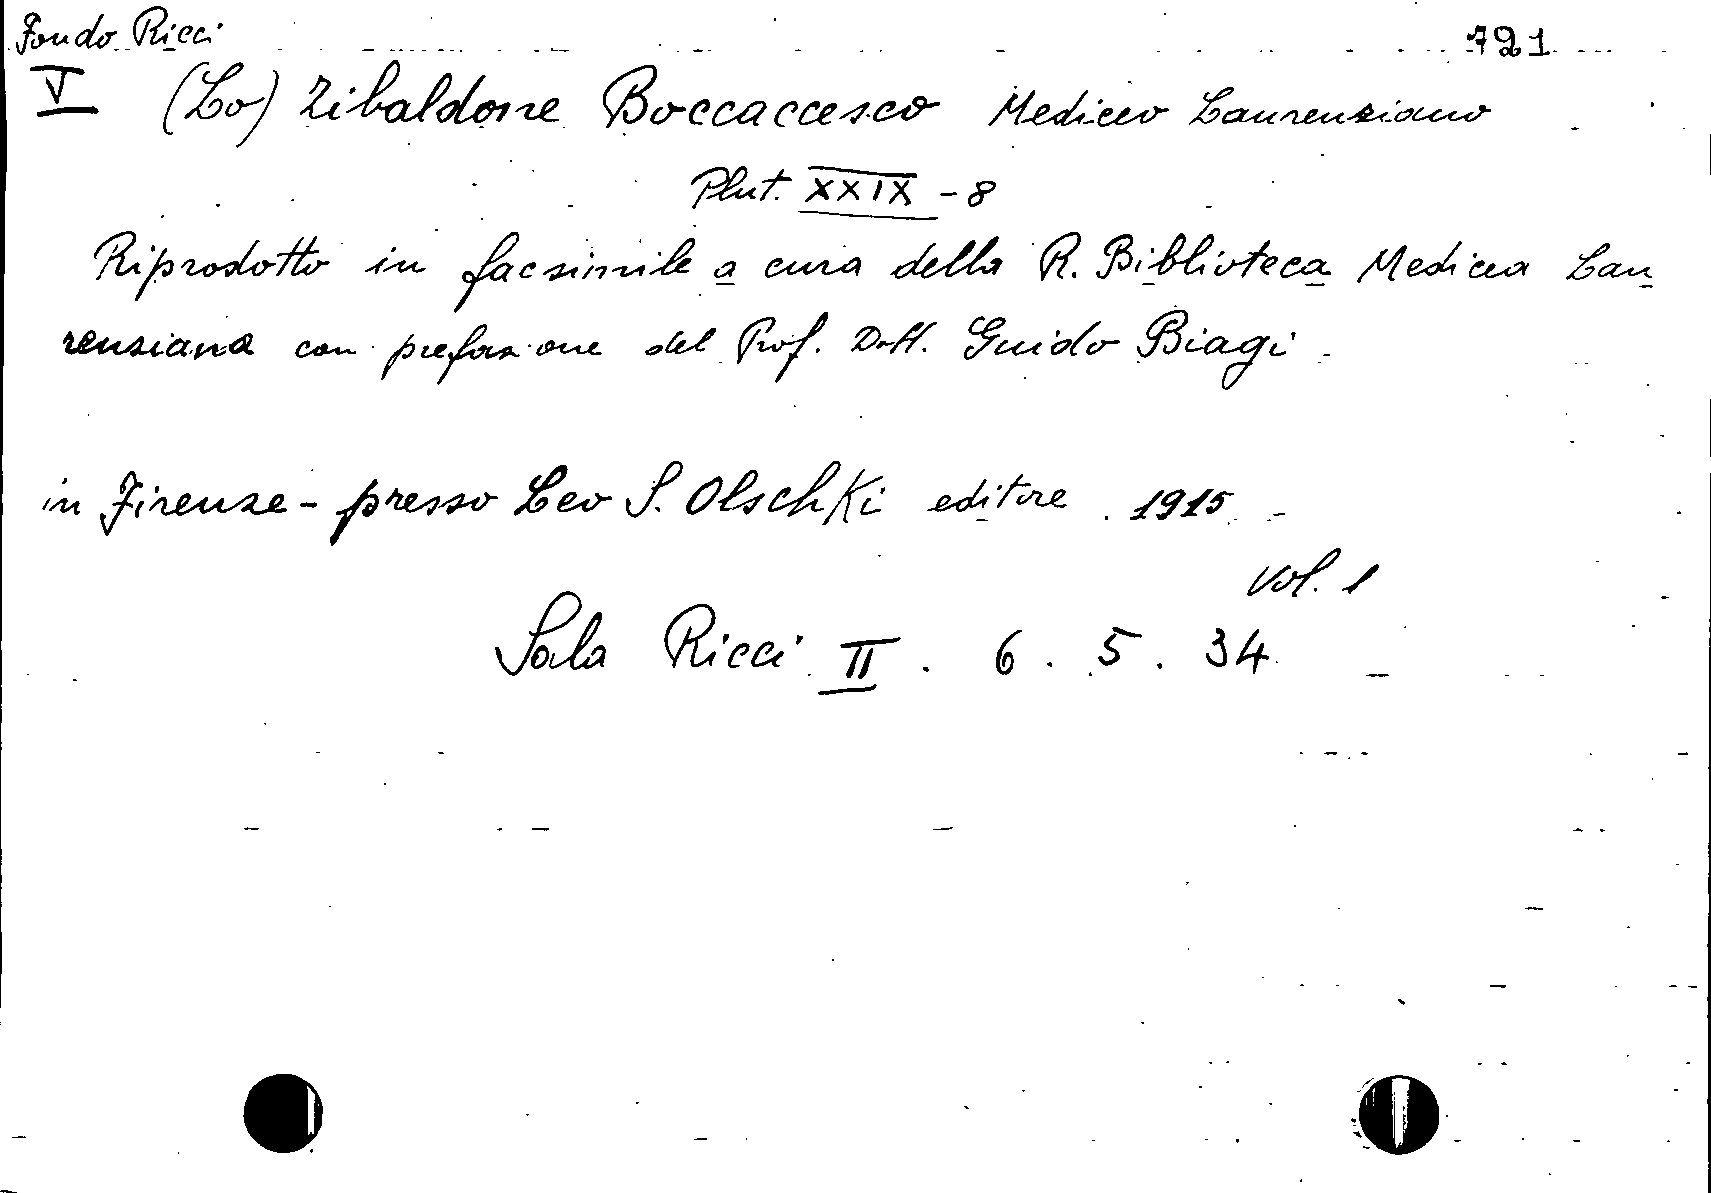 Fondo Ricci 721
V (Lo) Zibaldone Boccaccesco Mediceo Laurenziano
Plut. XXIX - 8
Riprodotto in facsimile a cura della R. Biblioteca Medicea Lau
renziana con prefazione del Prof. Dott. Guido Biagi
in Firenze - presso Leo S. Olschki editore 1915 -
vol. 1
Sala Ricci II . 6 . 5 . 34